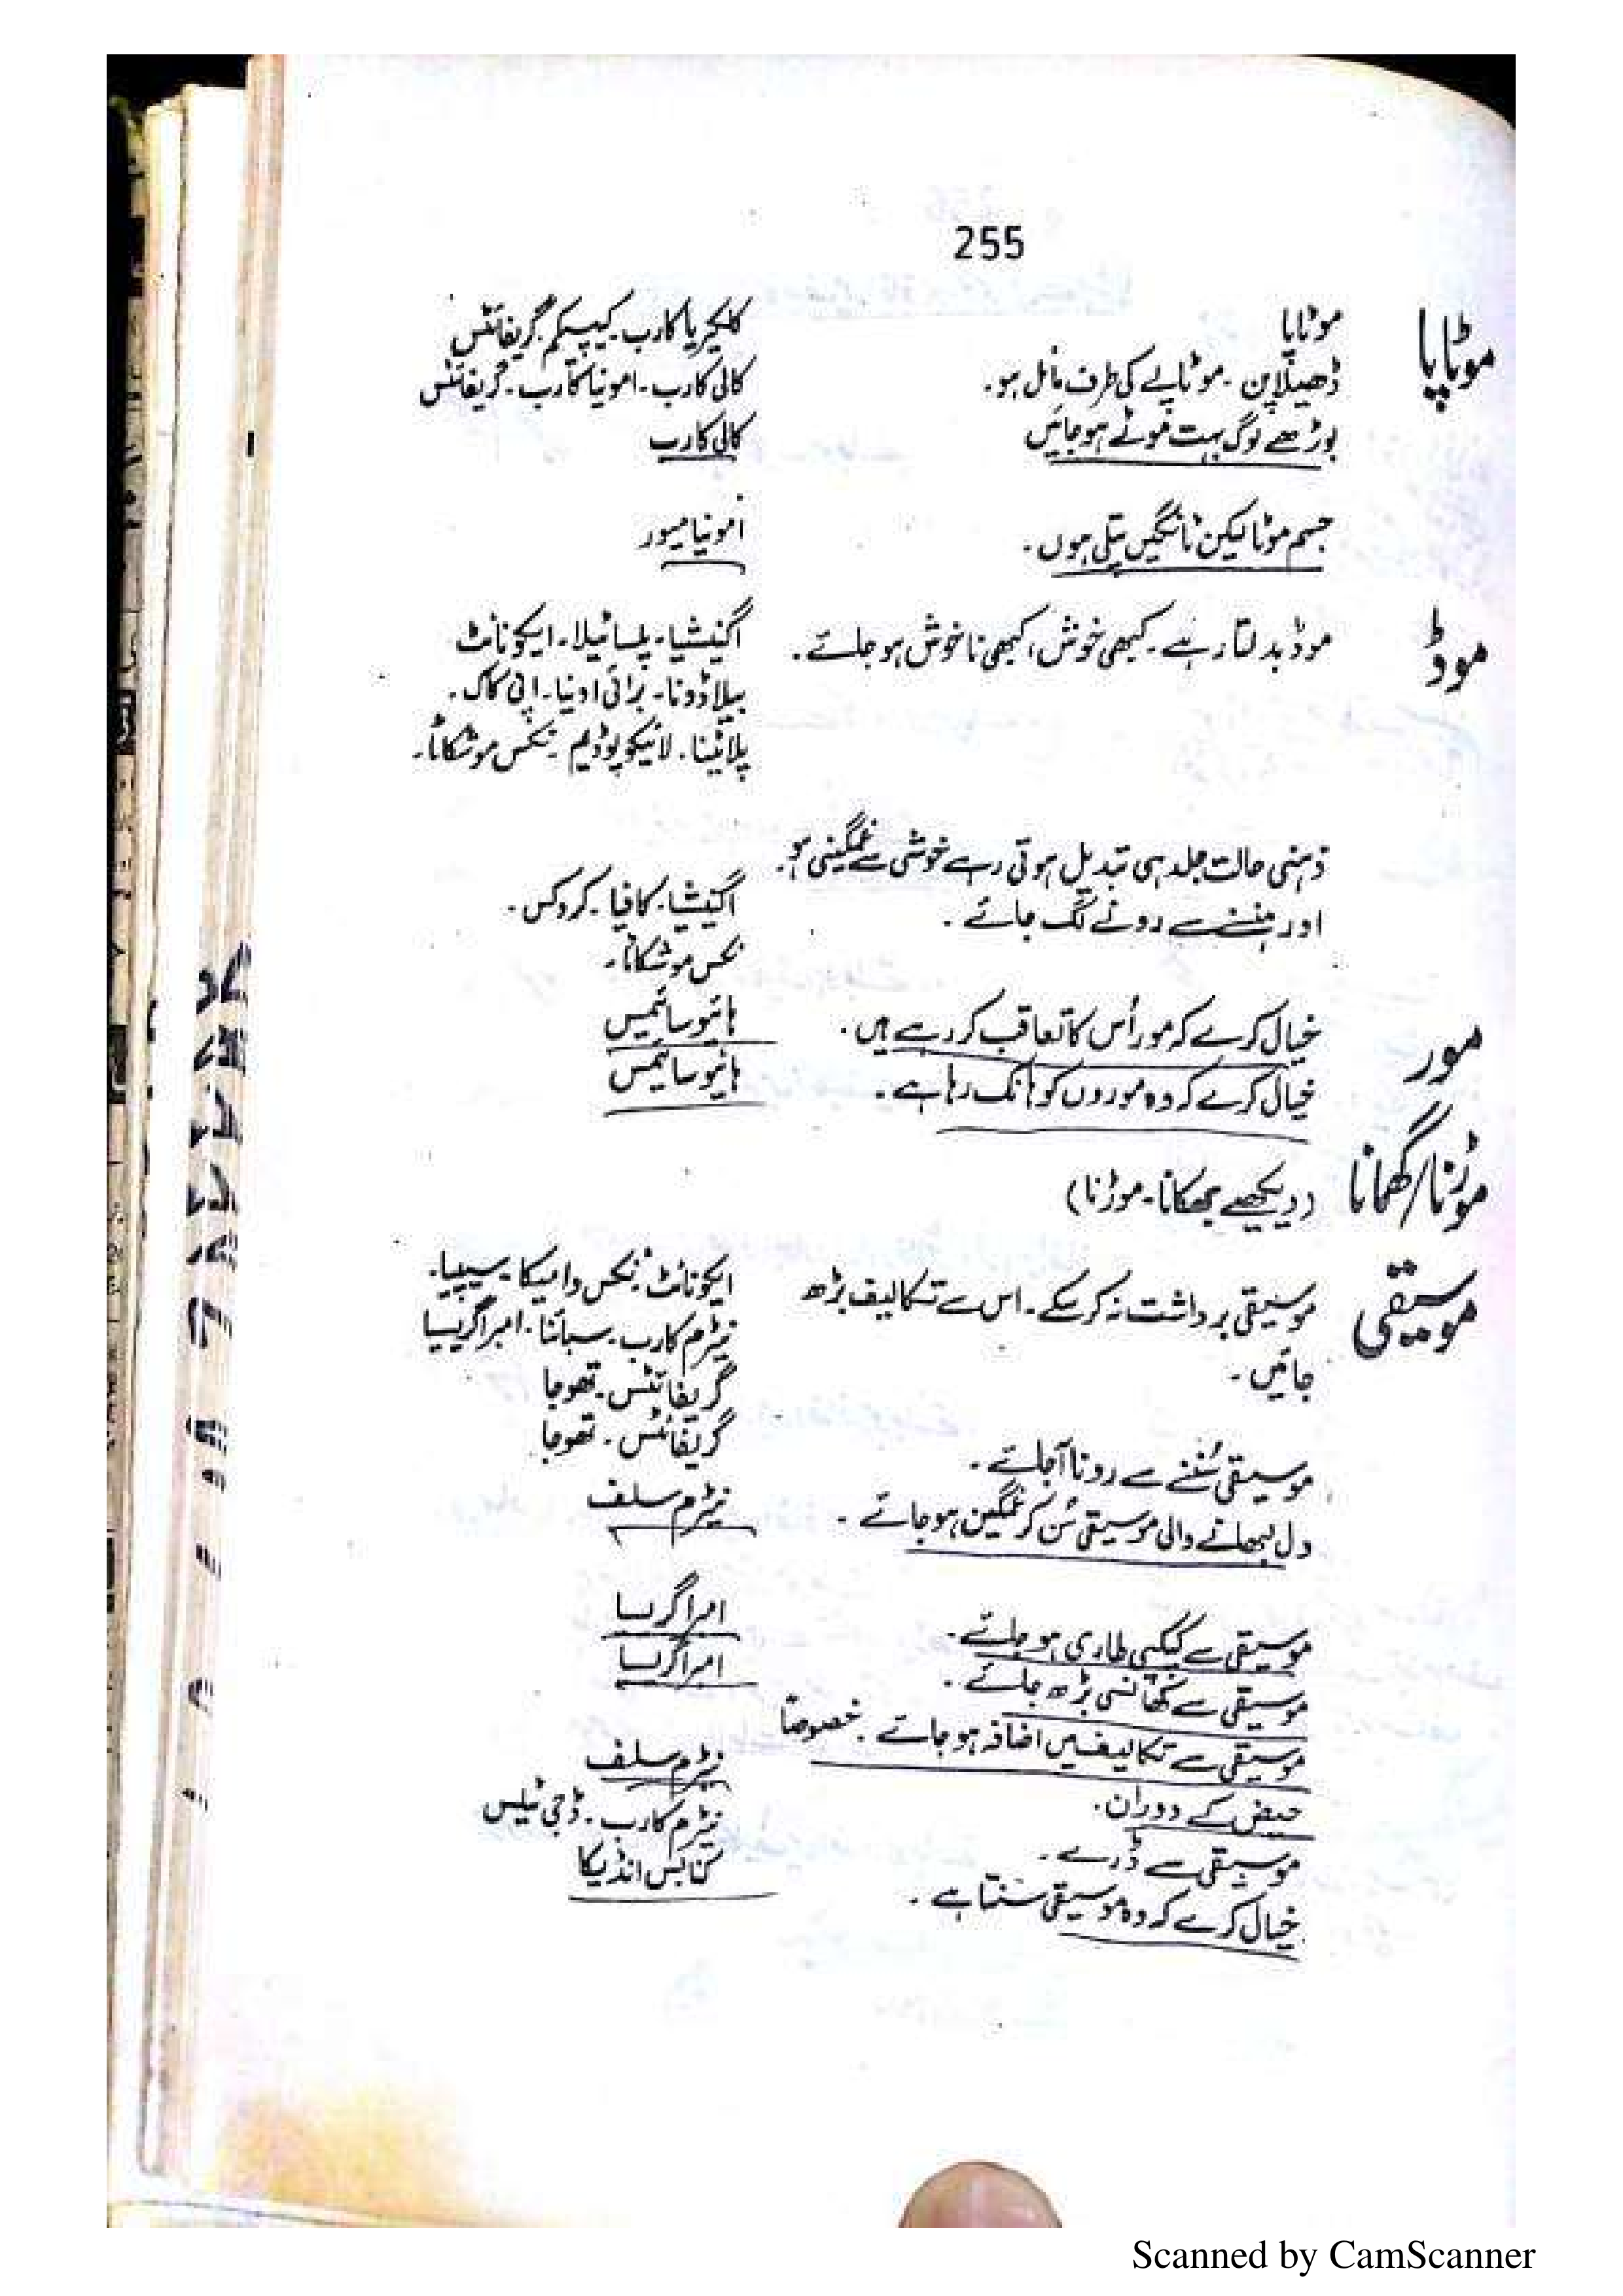 255
موٹاپا
موٹاپا
کلکیریا کارب۔ کیپسکم۔ گریفائٹس
ڈھیلاپن ۔ موٹاپے کی طرف مائل ہو۔
کالی کارب۔ امونیا کارب۔ گریفائٹس
بوڑھے لوگ بہت موٹے ہو جائیں
کالی کارب
جسم موٹا لیکن ٹانگیں پتلی ہوں۔
امونیا میور
موڈ
موڈ بدلتا رہے۔ کبھی خوش، کبھی ناخوش ہو جائے۔
اگنیشیا۔ پلساٹیلا۔ ایکونائٹ
بیلاڈونا۔ برائی اونیا۔ اپی کاک۔
پلاٹینا۔ لائیکوپوڈیم ۔ نکس موشکاٹا۔
ذہنی حالت جلد ہی تبدیل ہوتی رہے خوشی سے غمگینی ہو۔
اور ہنسنے سے رونے لگ جائے ۔
اگنیشیا۔ کافیا۔ کروکس۔
نکس موشکاٹا۔
مور
خیال کرے کہ مور اُس کا تعاقب کر رہے ہیں۔
ہائیوسائمیس
خیال کرے کہ وہ موروں کو ہانک رہا ہے۔
ہائیوسائمیس
موڑنا/گھمانا
(دیکھیے جھکانا۔ موڑنا)
موسیقی
موسیقی برداشت نہ کر سکے۔ اس سے تکالیف بڑھ
جائیں ۔
ایکونائٹ۔ نکس وامیکا۔ سیپیا۔
نیٹرم کارب۔ سبائنا۔ امبراگریسیا
گریفائٹس۔ تھوجا
موسیقی سُننے سے رونا آجائے ۔
گریفائٹس۔ تھوجا
دل لبھانے والی موسیقی سُن کر غمگین ہو جائے ۔
نیٹرم سلف
موسیقی سے کپکپی طاری ہو جائے۔
امبراگریسا
موسیقی سے کھانسی بڑھ جائے ۔
امبراگریسا
موسیقی سے تکالیف میں اضافہ ہو جائے ۔ خصوصاً
حیض کے دوران۔
نیٹرم سلف
موسیقی سے ڈرے ۔
نیٹرم کارب۔ ڈجی ٹیلس
خیال کرے کہ وہ موسیقی سنتا ہے ۔
کنابس انڈیکا
Scanned by CamScanner